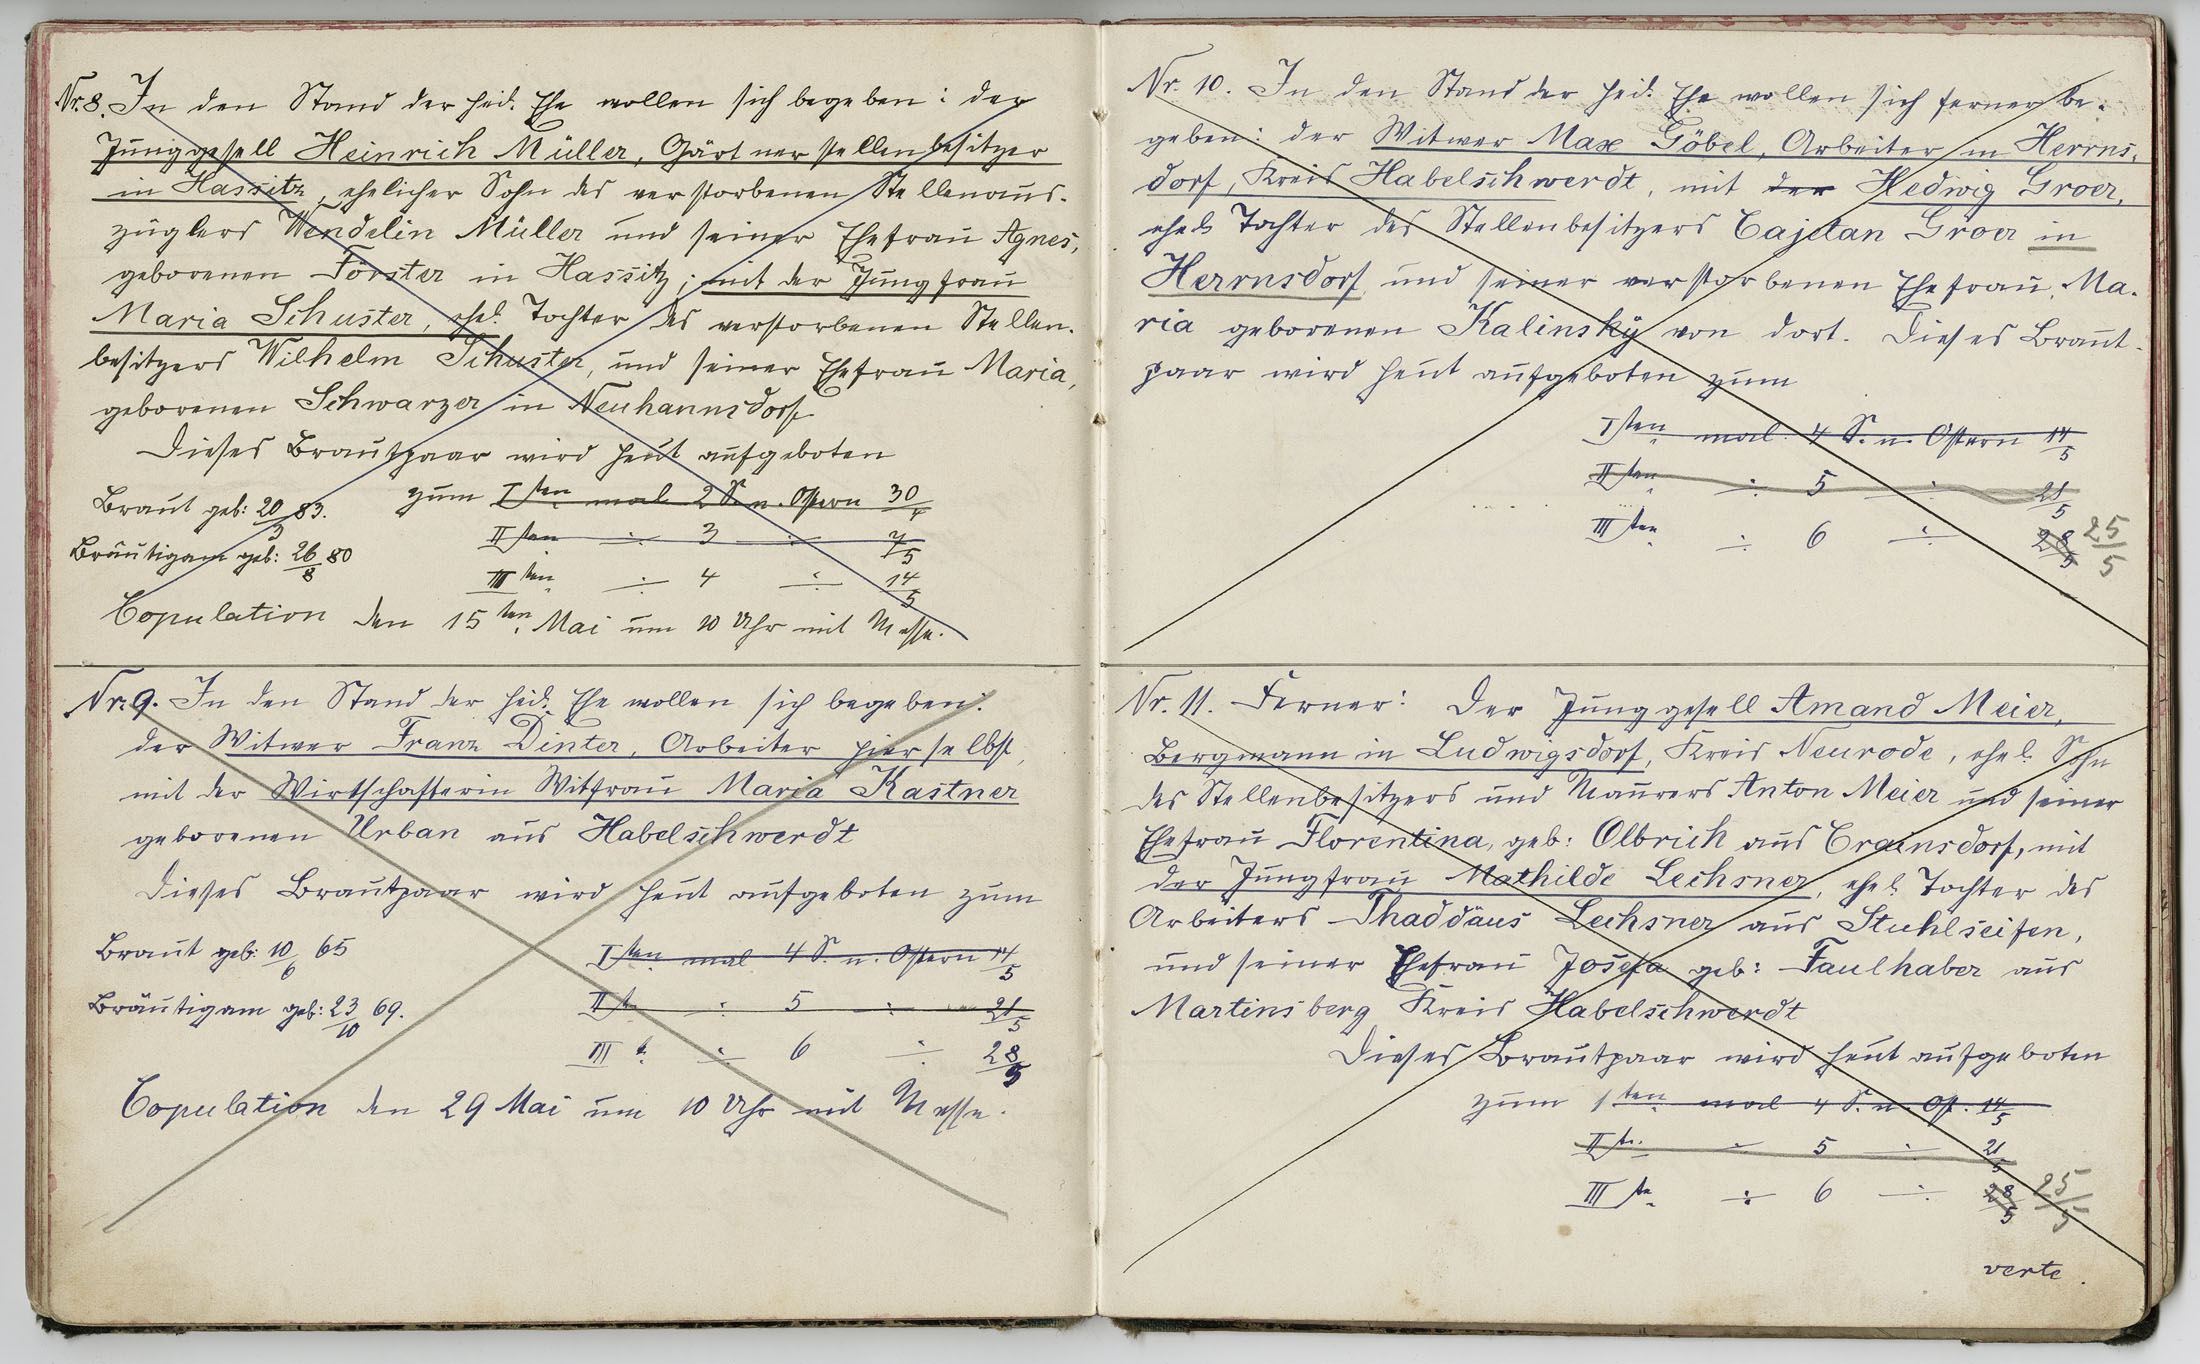 Nr. 8. In den Stand der heil. Ehe wollen sich begeben: der
Junggesell Heinrich Müller, Gärtnerstellenbesitzer
in Hassitz, ehelicher Sohn des verstorbenen Stellenaus-
züglers Wendelin Müller und seiner Ehefrau Agnes,
geborenen Förster in Hassitz; mit der Jungfrau
Maria Schuster, ehel. Tochter des verstorbenen Stellen-
besitzers Wilhelm Schuster, und seiner Ehefrau Maria,
geborenen Schwarzer in Neuhannsdorf.
Dieses Brautpaar wird heut aufgeboten
zum Iten mal 2 S. n. Ostern 30/4
Braut geb: 20/3 83.
IIten ÷ 3 ÷ 7/5
Bräutigam geb: 26/8 80
IIIten ÷ 4 ÷ 14/5
Copulation den 15ten Mai um 10 Uhr mit Messe.
Nr. 9. In den Stand der heil. Ehe wollen sich begeben:
der Witwer Franz Dinter, Arbeiter hierselbst,
mit der Wirtschafterin Witfrau Maria Kastner
geborenen Urban aus Habelschwerdt
Dieses Brautpaar wird heut aufgeboten zum
Braut geb: 10/6 65
Iten mal 4 S. n. Ostern 14/5
Bräutigam geb: 23/10 69.
IIt. ÷ 5 ÷ 21/5
III t. ÷ 6 ÷ 28/5
Copulation den 29 Mai um 10 Uhr mit Messe.
Nr. 10. In den Stand der heil. Ehe wollen sich ferner be-
geben: der Witwer Max Göbel, Arbeiter in Herrns-
dorf, Kreis Habelschwerdt, mit der Hedwig Groer,
ehel. Tochter des Stellenbesitzers Cajetan Groer in
Herrnsdorf und seiner verstorbenen Ehefrau, Ma-
ria geborenen Kalinsky von dort. Dieses Braut-
paar wird heut aufgeboten zum
Iten mal 4 S. n. Ostern 14/5
IIten ÷ 5 ÷ 21/5
IIIten ÷ 6 ÷ 28/5 25/5
Nr. 11. Ferner: Der Junggesell Amand Meier,
Bergmann in Ludwigsdorf, Kreis Neurode, ehel. Sohn
des Stellenbesitzers und Maurers Anton Meier und seiner
Ehefrau Florentina, geb: Olbrich aus Crainsdorf, mit
der Jungfrau Mathilde Lechsner, ehel. Tochter des
Arbeiters Thaddäus Lechsner aus Stuhlseifen,
und seiner Ehefrau Josefa geb: Faulhaber aus
Martinsberg Kreis Habelschwerdt
Dieses Brautpaar wird heut aufgeboten
zum 1ten mal 4 S. n. Ost. 14/5
II te. ÷ 5 ÷ 21/5
III te. ÷ 6 ÷ 28/5 25/5
verte.